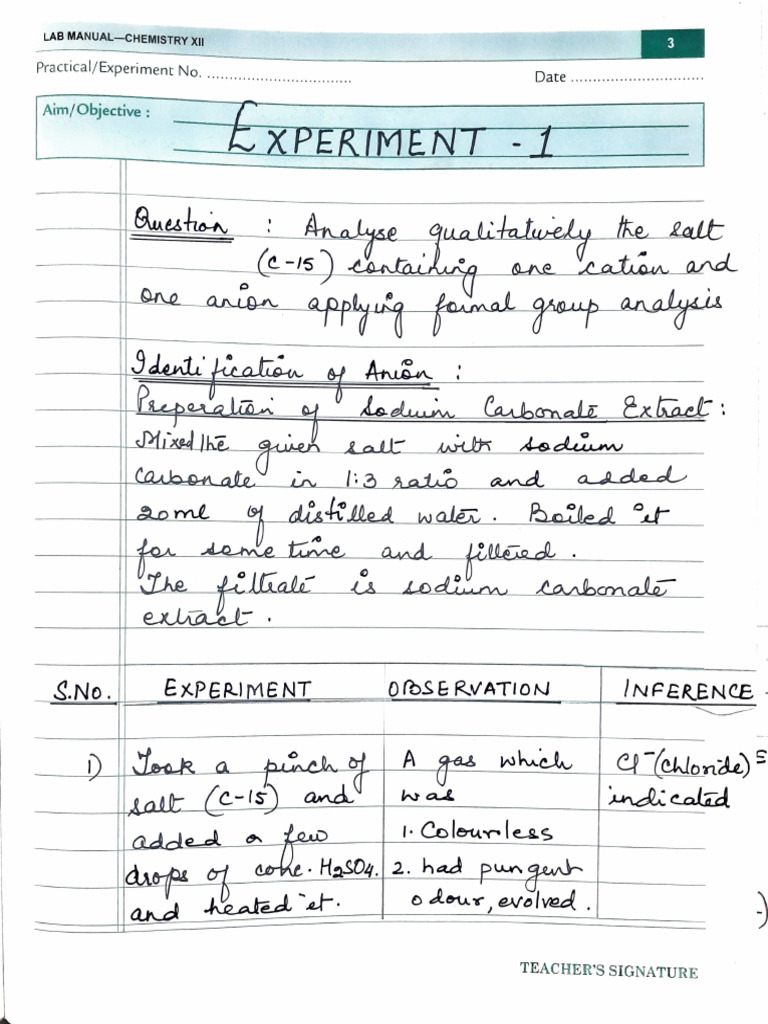 LAB MANUAL—CHEMISTRY XII
3
Practical/Experiment No. ................................
Date ..............................
Aim/Objective :
EXPERIMENT - 1
Question : Analyse qualitatively the salt
(C-15) containing one cation and
one anion applying formal group analysis
Identification of Anion :
Preperation of Sodium Carbonate Extract :
Mixed the given salt with sodium
carbonate in 1:3 ratio and added
20ml of distilled water. Boiled it
for some time and filtered.
The filtrate is sodium carbonate
extract.
S.NO. EXPERIMENT OBSERVATION INFERENCE
1) Took a pinch of A gas which Cl⁻(chloride)
salt (C-15) and was indicated
added a few 1. Colourless
drops of conc. H2SO4. 2. had pungent
and heated it. odour, evolved.
TEACHER'S SIGNATURE